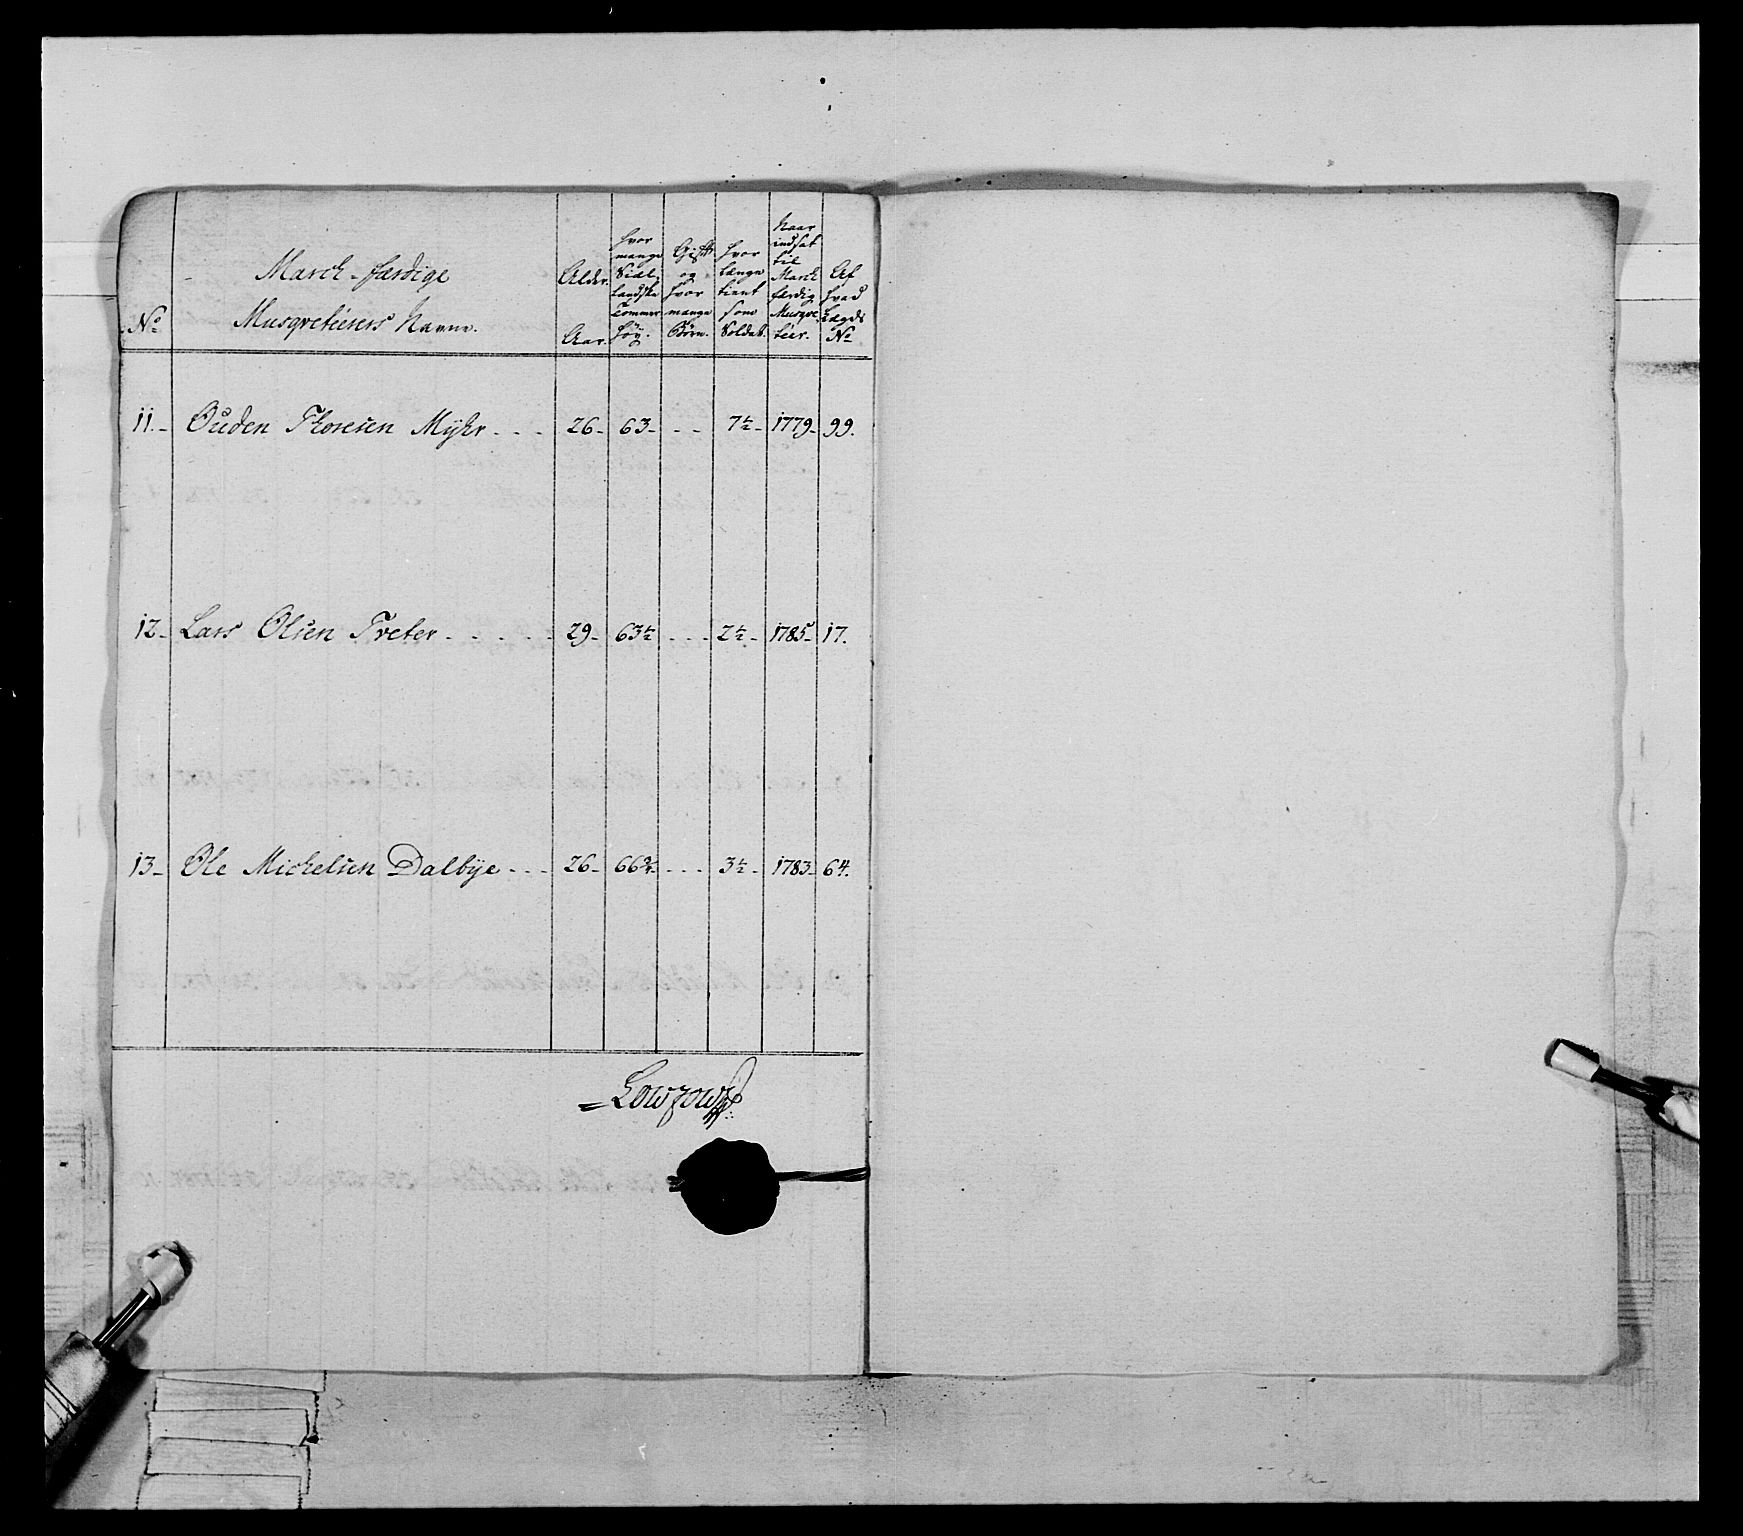 No
March-færdige
Musqvetiérers Navne.
Alder.
Aar.
Hvor
mange
Siæl-
landske
Tommer
høy.
Gift
og
hvor
mange
Børn.
Hvor
længe
tient
som
Soldat.
Naar
indsat
til
March
færdig
Musqve
teer.
Af
hvad
Lægds
No
11.- Ouden Thoresen Myhr - - - 26- 63- - - 7½- 1779- 99.
12.- Lars Olsen Treter - - - - - 29- 63½ - - - 2½- 1785- 17.
13.- Ole Michelsen Dalbÿe - - - 26- 66¾- - - - 3½- 1783- 64.
Lowzow